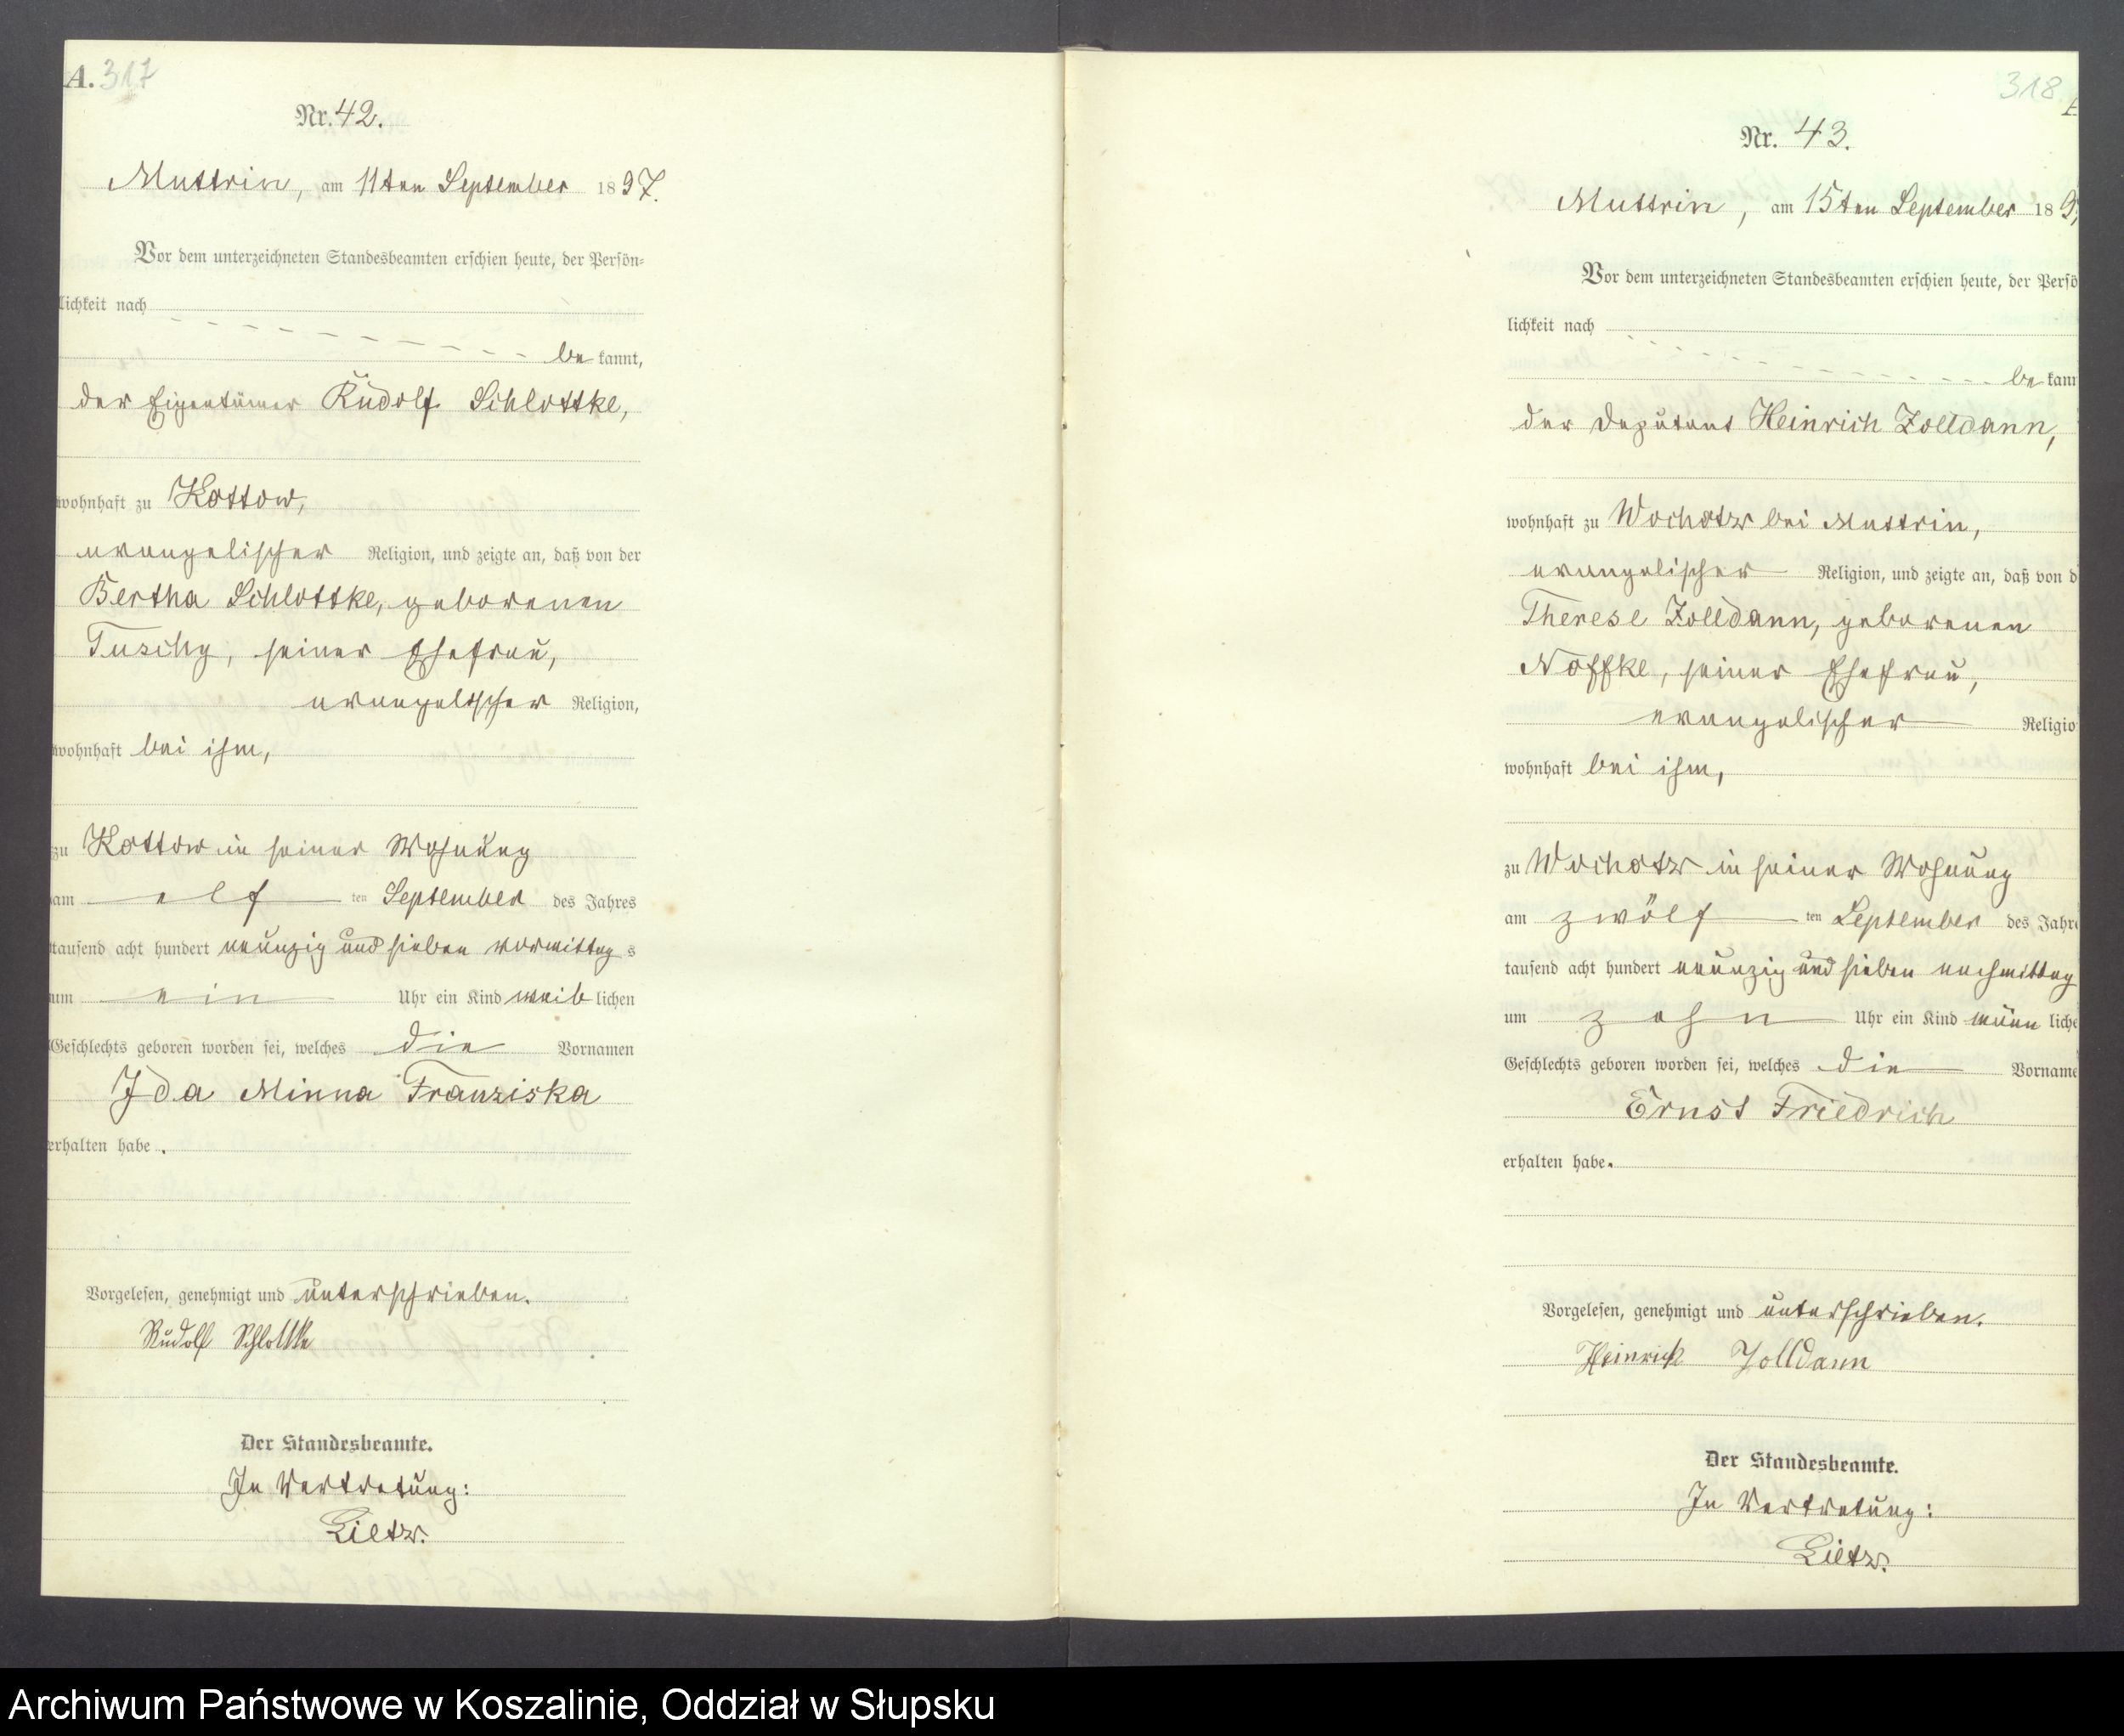 A. 317
Nr. 42.
Muttrin, am 11ten September 1897.
Vor dem unterzeichneten Standesbeamten erschien heute, der Persön=
lichkeit nach
be kannt,
der Eigentümer Rudolf Schlottke,
wohnhaft zu Kottow,
evangelischer Religion, und zeigte an, daß von der
Bertha Schlottke, geborenen
Tuschy, seiner Ehefrau,
evangelischer Religion,
wohnhaft bei ihm,
zu Kottow in seiner Wohnung
am elf ten September des Jahres
tausend acht hundert neunzig und sieben vormittag s
um ein Uhr ein Kind weib lichen
Geschlechts geboren worden sei, welches die Vornamen
Ida Minna Franziska
erhalten habe.
Vorgelesen, genehmigt und unterschrieben.
Rudolf Schlottke
Der Standesbeamte.
In Vertretung:
Lietz.
318
Nr. 43.
Muttrin, am 15ten September 189
Vor dem unterzeichneten Standesbeamten erschien heute, der Persö
lichkeit nach
be kann
der Deputant Heinrich Zolldann,
wohnhaft zu Wochatz bei Muttrin,
evangelischer Religion, und zeigte an, daß von d
Therese Zolldann, geborenen
Noffke, seiner Ehefrau,
evangelischer Religio
wohnhaft bei ihm,
zu Wochatz in seiner Wohnung
am zwölf ten September des Jahre
tausend acht hundert neunzig und sieben nachmittag
um zehn Uhr ein Kind männ liche
Geschlechts geboren worden sei, welches die Vorname
Ernst Friedrich
erhalten habe.
Vorgelesen, genehmigt und unterschrieben.
Heinrich Zolldann
Der Standesbeamte.
In Vertretung:
Lietz.
Archiwum Państwowe w Koszalinie, Oddział w Słupsku